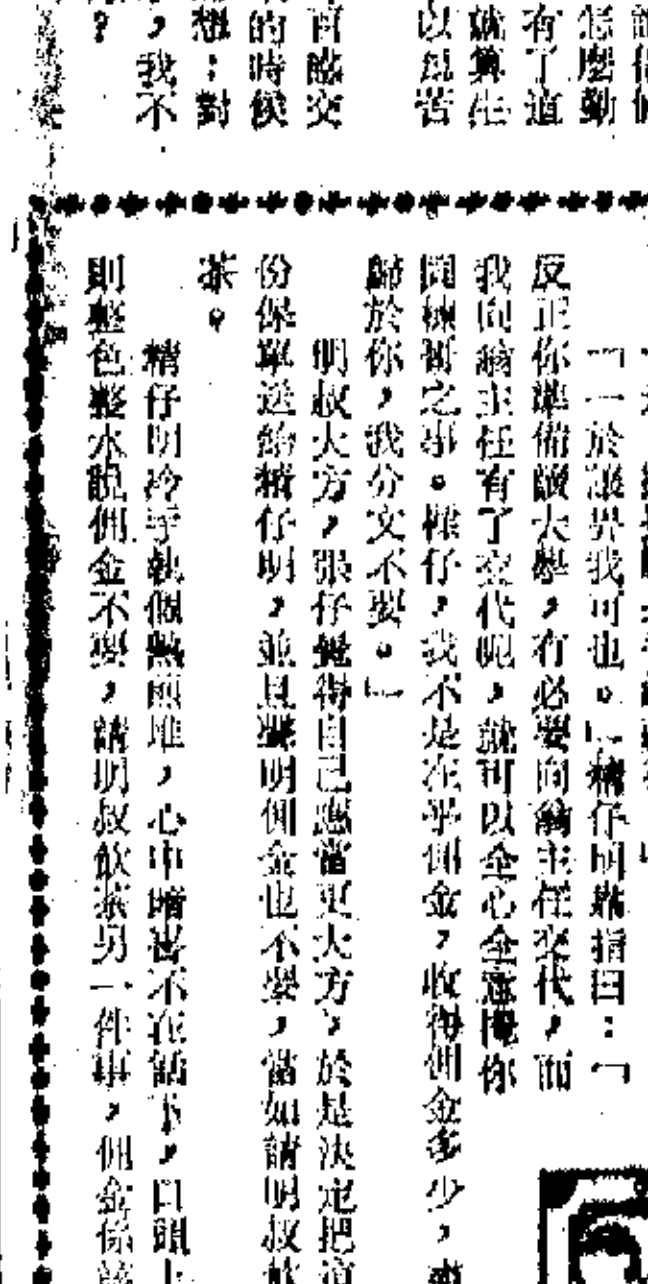 怎麼勤
有了道
就算生
以為苦
百感交
的時候
想：對
，我不
？
「一於讓畀我可也。」精仔明鼎指曰：「
反正你準備讀大學，有必要向翁主任交代，而
我向翁主任有了交代呢，就可以全心全意攪你
同棟哥之事。樣仔，我不是在乎佣金，收得佣金多少，
歸於你，我分文不要。」
明叔大方，張仔覺得自己應當更大方，於是決定把這
份保單送給精仔明，並且聲明佣金也不要，當如請明叔飲
茶。
精仔明冷手執個熱煎堆，心中暗喜不在話下，口頭上
則整色整水說佣金不要，請明叔飲茶另一件事，佣金係